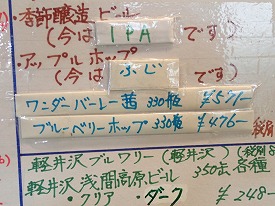 ・季節醸造ビール
(今は IPA です)
・アップルホップ
(今は ふじ です)
ワンダーバーレー 茜 330瓶 ¥571-
ブルーベリーホップ 330瓶 ¥476-
税別
軽井沢ブルワリー(軽井沢)(税別
軽井沢浅間高原ビール 350缶 各種
・クリア ・ダーク ¥248-